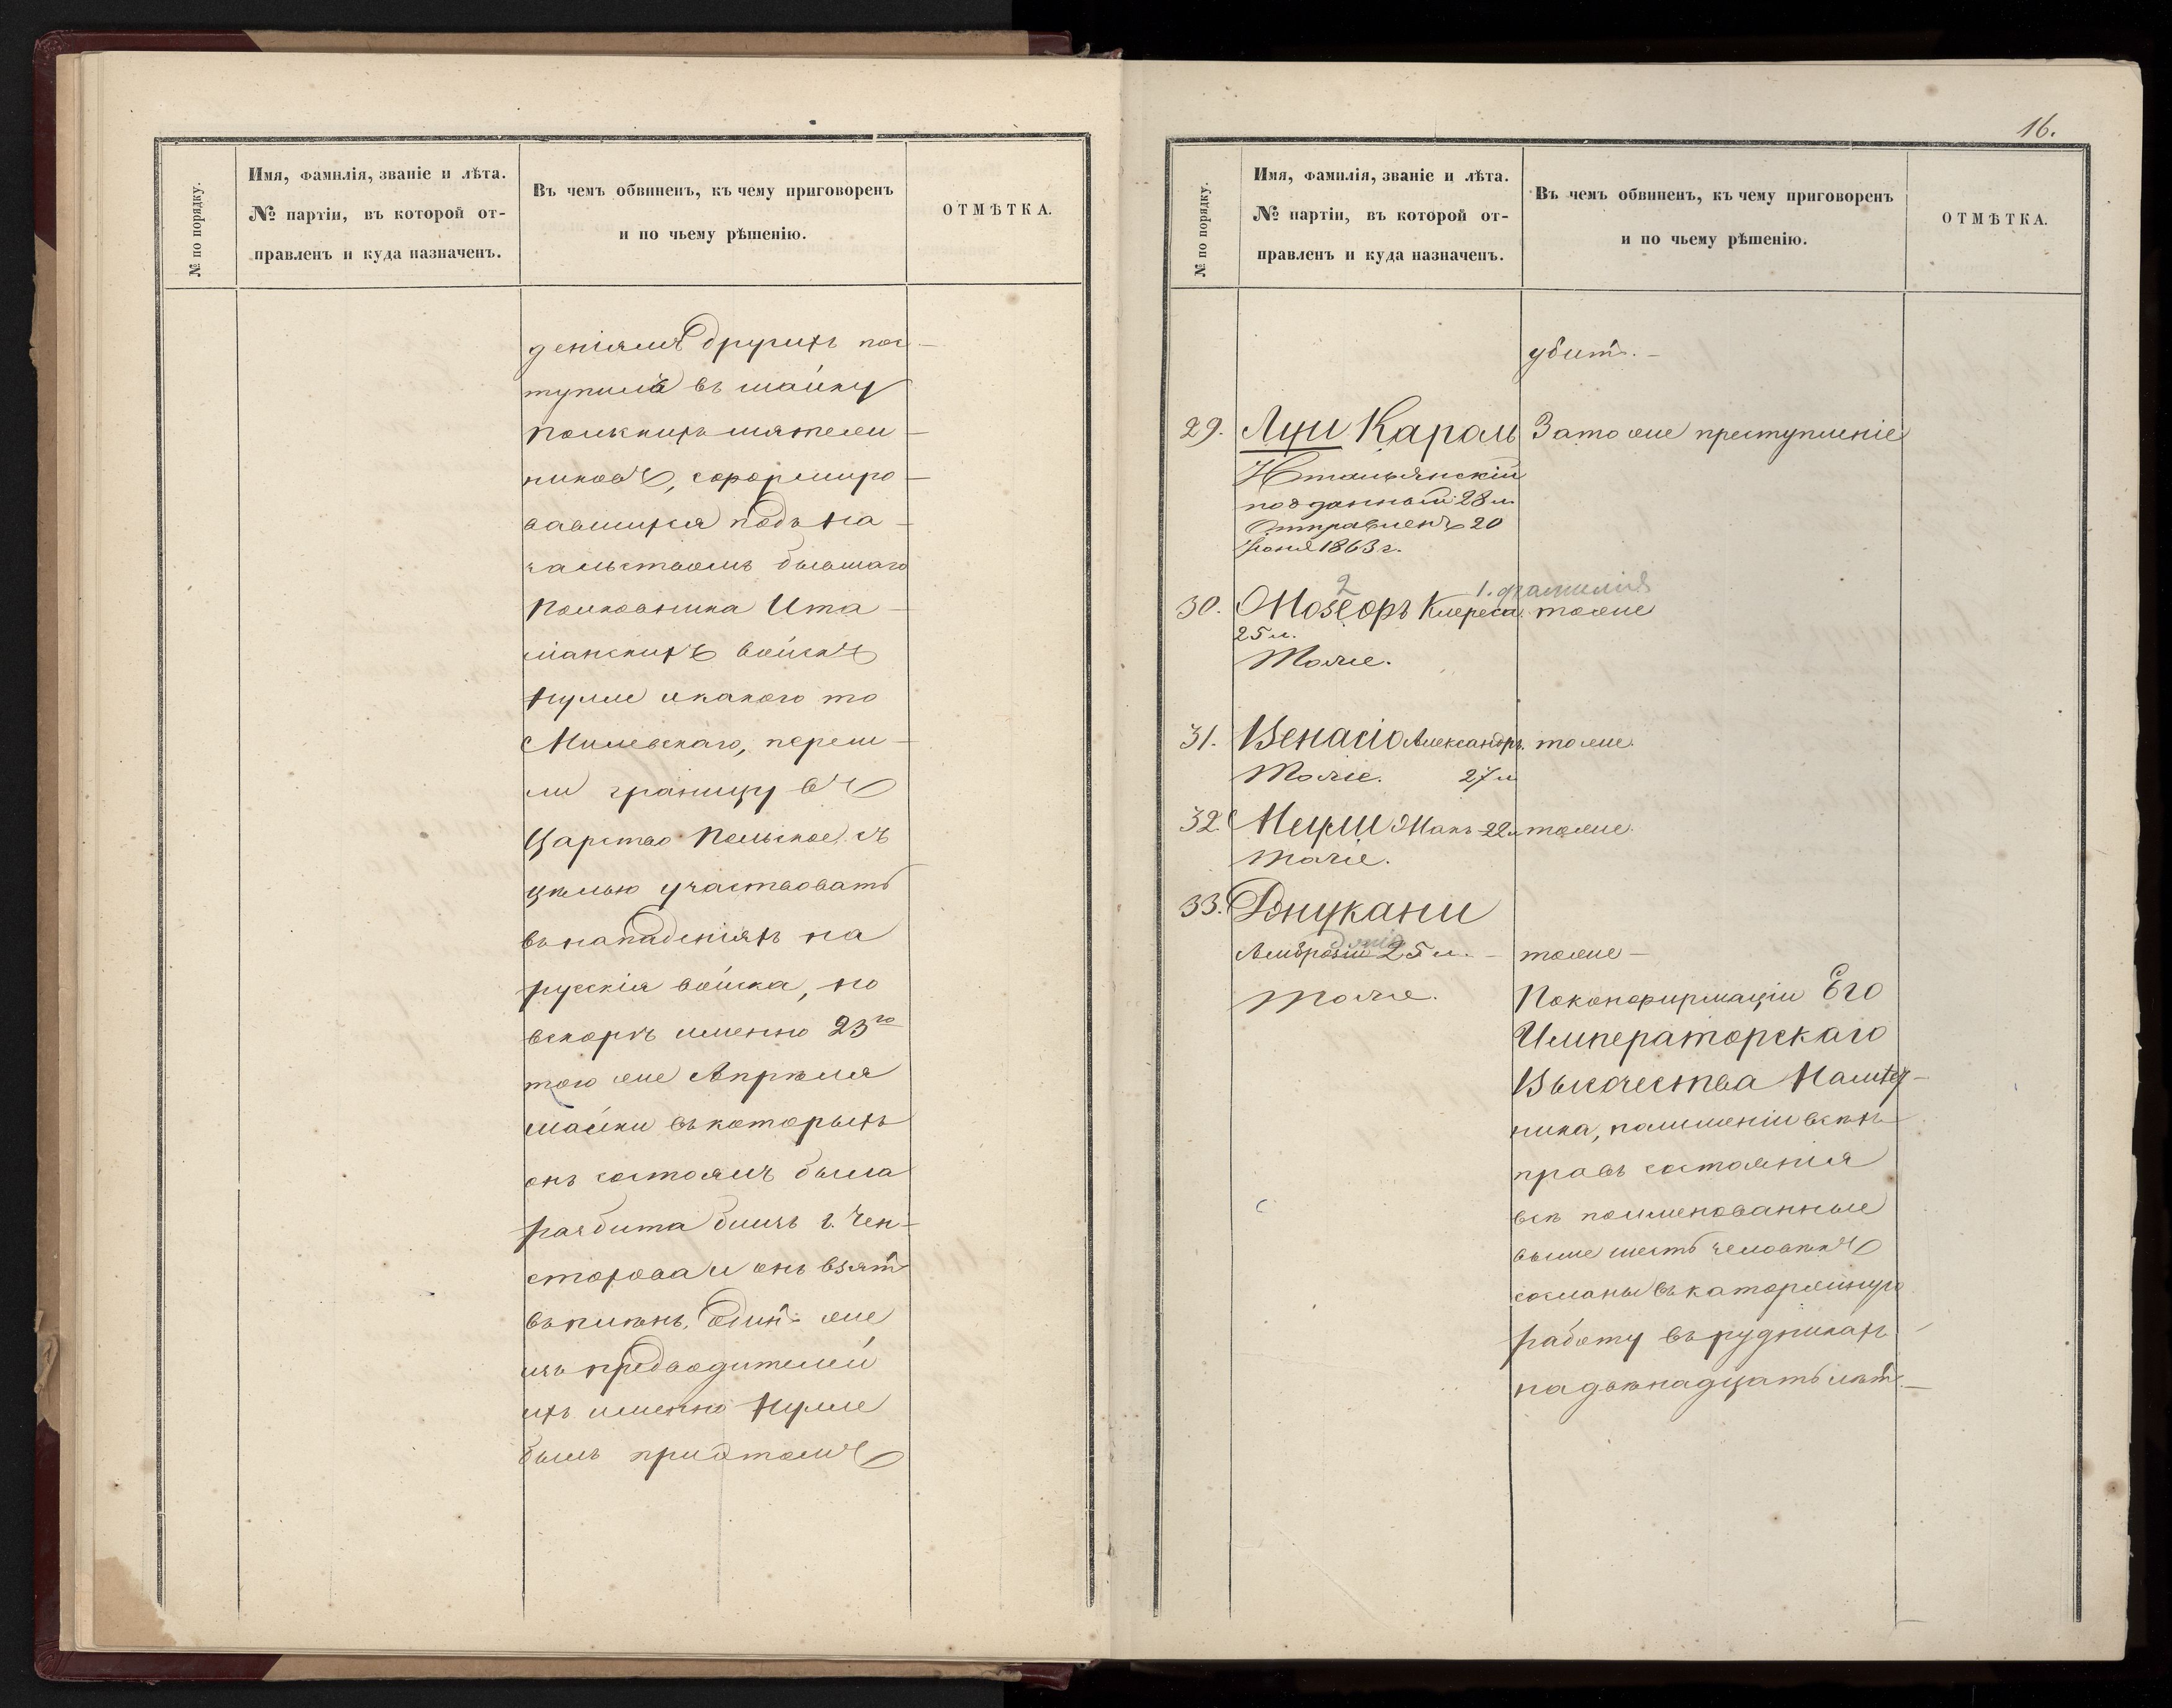 № по порядку.
Имя, фамилія, званіе и лѣта.
№ партіи, въ которой от-
правленъ и куда назначенъ.
Въ чемъ обвиненъ, къ чему приговоренъ
и по чьему рѣшенію.
ОТМѢТКА.
деніямъ другихъ пос-
тупилъ въ шайку
Польскихъ мятеж-
никовъ, сформиро-
вавшихся подъ на-
чальствомъ бывшаго
Полковника Ита-
ліанскихъ войскъ
Нулле и какого то
Милевскаго, переш-
ли границу въ
Царство Польское, съ
цѣлью участвовать
въ нападеніяхъ на
русскія войска, но
вскорѣ именно 23го
того же Апрѣля
шайки въ которыхъ
онъ состоялъ была
разбита близь г. Чен-
стохова и онъ взятъ
въ плѣнъ, одинъ же
изъ предводителей
ихъ именно Нулле
былъ при томъ
16.
№ по порядку.
Имя, фамилія, званіе и лѣта.
№ партіи, въ которой от-
правленъ и куда назначенъ.
Въ чемъ обвиненъ, къ чему приговоренъ
и по чьему рѣшенію.
ОТМѢТКА.
убитъ. –
29. Луи Кароль За то же преступленіе
Итальянскій
подданный 28 л.
Отправленъ 20
Іюня 1863 г.
2 1. фамилія
30. Клереса тоже
25 л.
Тоже.
31. Венасіо Александръ тоже.
Тоже. 27 л
32. Меули 22 л тоже.
Тоже.
33.
Амброзіи 25 л. – тоже –
Тоже.
По конфирмаціи Его
Императорскаго
Высочества Намѣст-
ника, по лишеніи всѣхъ
правъ состоянія
всѣ поименованные
выше шесть человѣкъ
сосланы въ каторжную
работу въ рудникахъ
на двѣнадцать лѣтъ. –